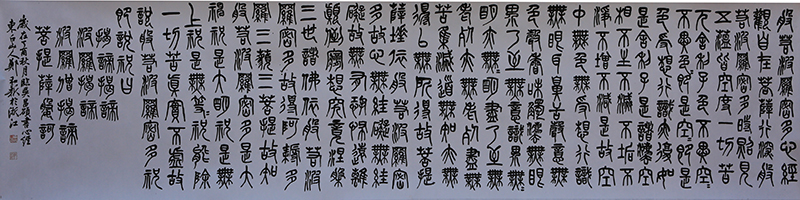 般若波羅密多心經
觀自在菩薩行深般
若波羅密多時照見
五蘊皆空度一切苦
厄舍利子色不異空
空不異色色即是空空即是
色受想行識亦復如
是舍利子是諸法空
相不生不滅不垢不
淨不增不減是故空
中無色無受想行識
無眼耳鼻舌身意無
色聲香味觸法無眼
界乃至無意識界無
無明亦無無明盡乃至
無老死亦無老死盡無
苦集滅道無智亦無
得以無所得故菩提
薩埵依般若波羅密
多故心無罣礙無罣
礙故無有恐怖遠離
顛倒夢想究竟涅槃
三世諸佛依般若波
羅密多故得阿耨多
羅三藐三菩提故知
般若波羅密多是大
神祝是大明祝是無
上祝是無等等祝能除
一切苦真實不虛故
說般若波羅密多祝
即說祝曰
揭諦揭諦
波羅揭諦
波羅僧揭諦
菩提薩婆訶
歲在丁酉秋月臨吳昌碩書心經